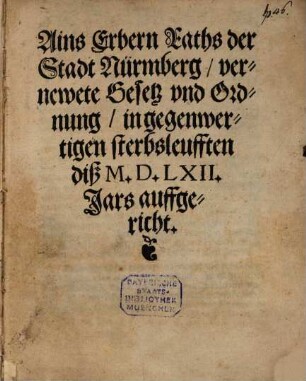 p.46.
Ains Erbern Raths der
Stadt Nürmberg / ver-
newete Gesetz vnd Ord-
nung / in gegenwer-
tigen sterbsleufften
diß M. D. LXII.
Jars auffge-
richt.
BAYERISCHE
STAATS-
BIBLIOTHEK
MUENCHEN